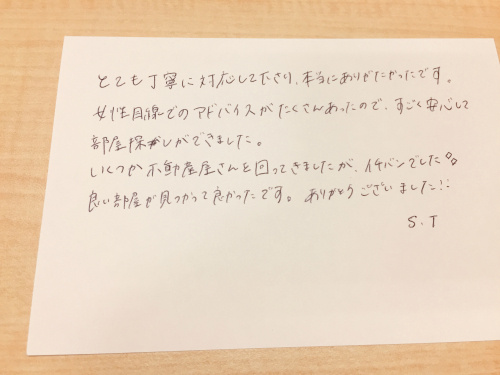 とても丁寧に対応して下さり、本当にありがたかったです。
女性目線でのアドバイスがたくさんあったので、すごく安心して
部屋探しができました。
いくつか不動産屋さんを回ってきましたが、イチバンでした。
良い部屋が見つかって良かったです。ありがとうございました!!
S.T